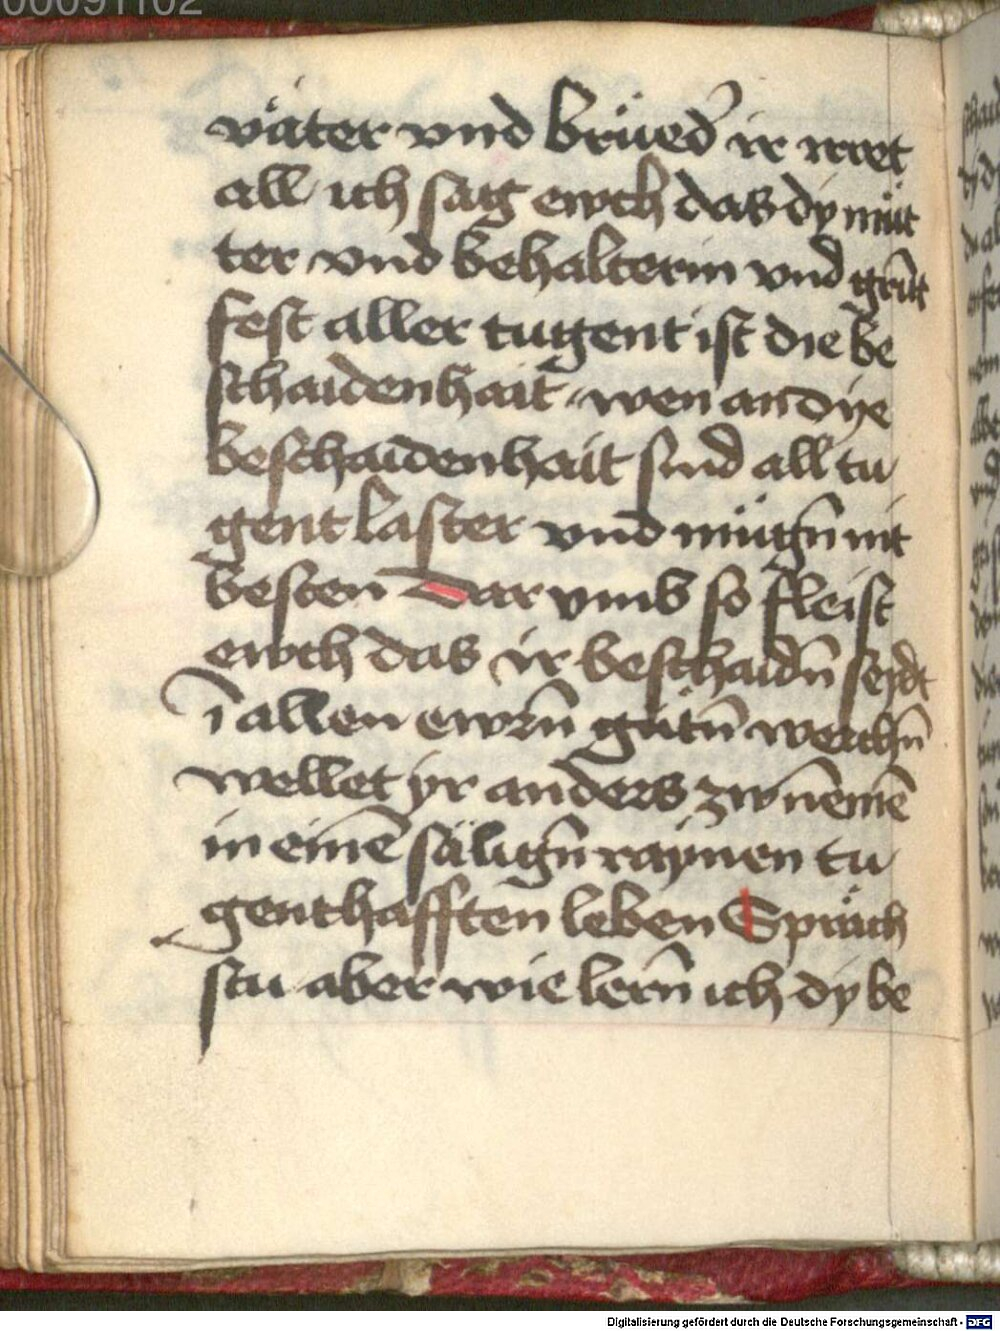 00091102
väter vnd brüed' ir irret
all ich sag ewch das dy müt
ter vnd behalterin vnd grūt
fest aller tugent ist die be
schaidenhait wen an dye
beschaidenhait sind all tu
gent laster vnd mügn̄ nit
besten Dar vmb so fleist
ewch das ir beschaidn̄ seydt
ī allen ewrn̄ gutn̄ werchn̄
wellet yr anders zw nemē
in einē sälign̄ raynen tu
genthafften leben Sprich
stu aber wie lern̄ ich dy be
Digitalisierung gefördert durch die Deutsche Forschungsgemeinschaft - DFG